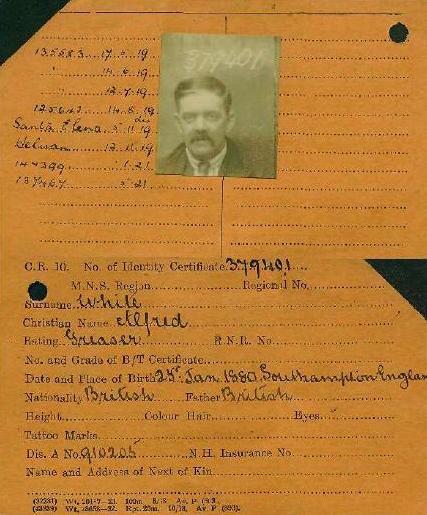 379401
135583 17.5.19
" 14.6.19
" 12.7.19
14.8.19
dis
Santa Elena 5.11.19
12.11.19
144399 1.21
5.21
C.R. 10. No. of Identity Certificate 379401
M.N.S. Region Regional No.
Surname White
Christian Name Alfred
Rating Greaser R.N.R. No.
No. and Grade of B/T Certificate
Date and Place of Birth 25th Jan. 1880. Southampton Englan
Nationality British Father British
Height Colour Hair Eyes
Tattoo Marks
Dis. A No. 910205 N.H. Insurance No.
Name and Address of Next of Kin